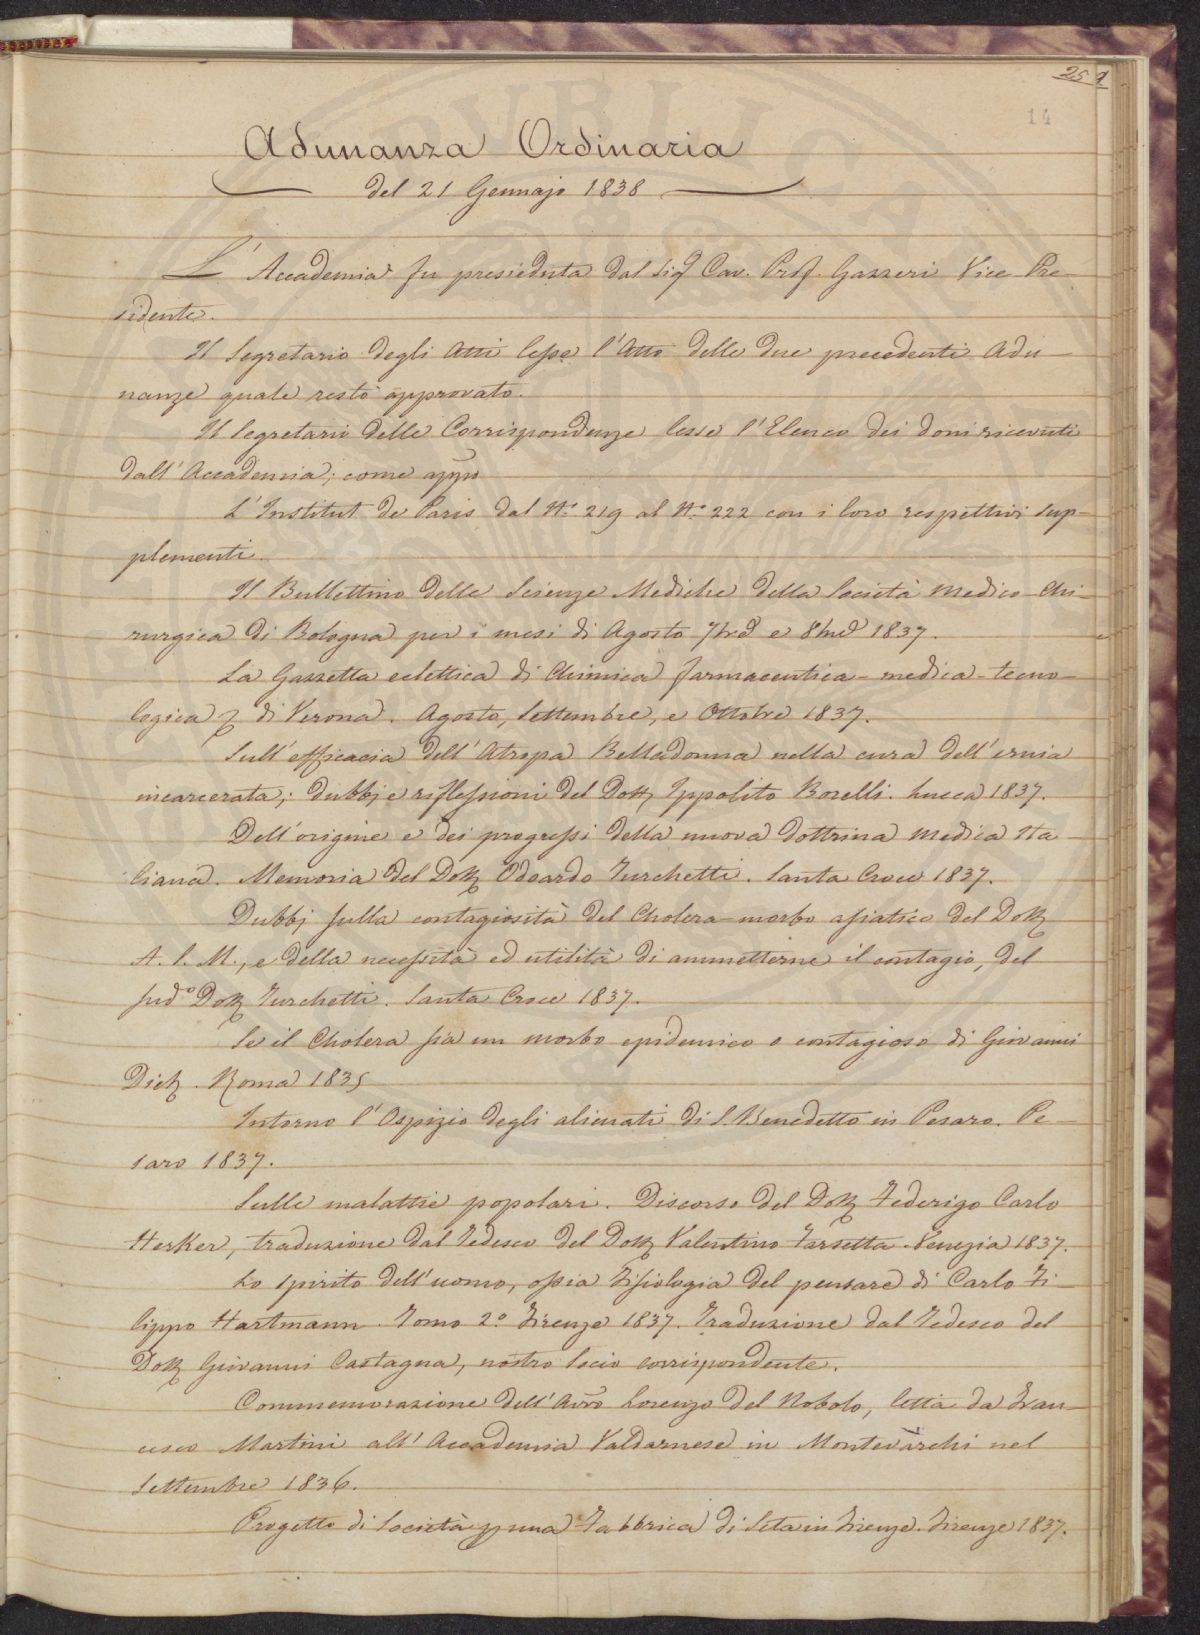 259
14
Adunanza Ordinaria
del 21 Gennajo 1838
L'Accademia fu presieduta dal Sigr Cav. Prof. Gazzeri Vice Pre-
sidente.
Il Segretario degli Atti lesse l'Atto delle due precedenti Adu-
nanze quale restò approvato.
Il Segretario delle Corrispondenze lesse l'Elenco dei doni ricevuti
dall'Accademia; come appo
L'Institut de Paris dal N.o 219 al N.o 222 con i loro respettivi sup-
plementi.
Il Bullettino delle Scienze Mediche della Società Medico-Chi-
rurgica di Bologna per i mesi di Agosto 7bre e 8bre 1837.
La Gazzetta eclettica di Chimica farmaceutica-medica-tecno-
logica di Verona. Agosto, Settembre, e Ottobre 1837.
Sull'efficacia dell'Atropa Belladonna nella cura dell'ernia
incarcerata; dubbj e riflessioni del Dott. Ippolito Borelli. Lucca 1837.
Dell'origine e dei progressi della nuova dottrina medica Ita-
liana. Memoria del Dott. Odoardo Turchetti. Santa Croce 1837.
Dubbj sulla contagiosità del Cholera-morbo asiatico del Dott.
A. S. M., e della necessità ed utilità di ammetterne il contagio, del
sudo Dott. Turchetti. Santa Croce 1837.
Se il Cholera sia un morbo epidemico o contagioso di Giovanni
Roma 1835
Intorno l'Ospizio degli alienati di S. Benedetto in Pesaro. Pe-
saro 1837.
Sulle malattie popolari. Discorso del Dott. Federigo Carlo
Herker, traduzione dal Tedesco del Dott. Valentino Farsetta. Venezia 1837.
Lo spirito dell'uomo, ossia Fisiologia del pensare di Carlo Fi-
lippo Hartmann. Tomo 2.o Firenze 1837. Traduzione dal Tedesco del
Dott. Giovanni Castagna, nostro Socio corrispondente.
Commemorazione dell'Avvo Lorenzo del Nobolo, letta da Fran-
cesco Martini all'Accademia Valdarnese in Montevarchi nel
Settembre 1836.
Progetto di Società p una Fabbrica di Seta in Firenze. Firenze 1837.